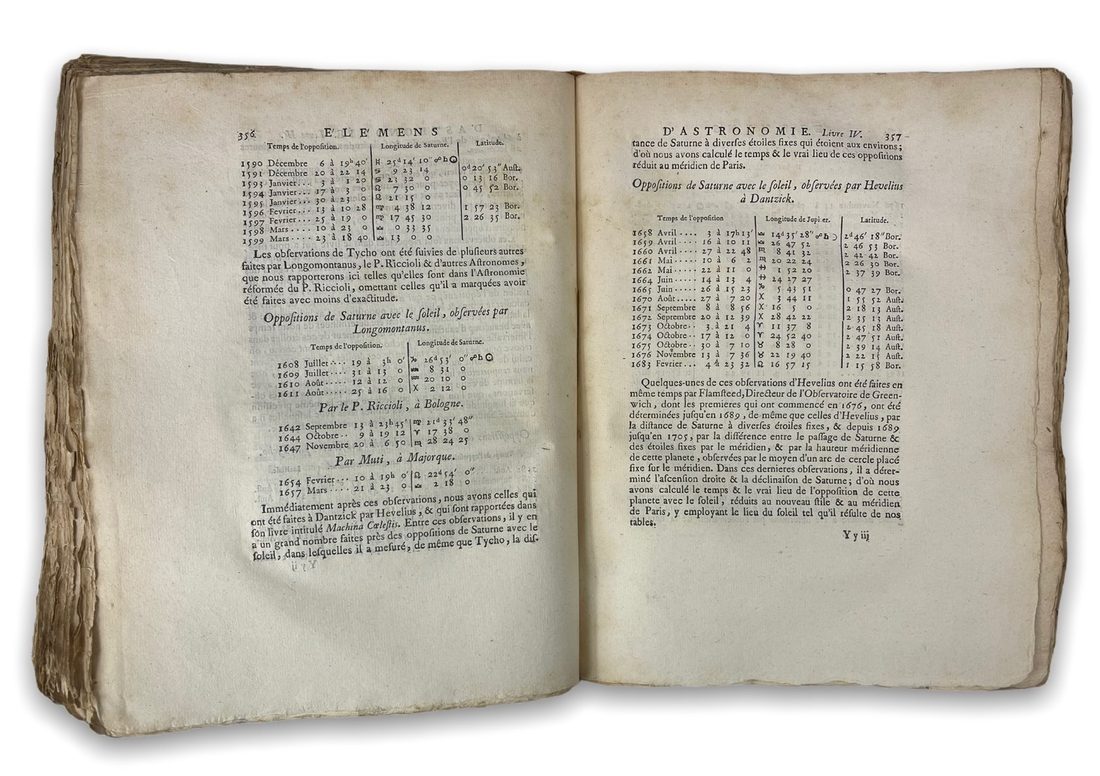 356 ELEMENS
Temps de l'oppoſition. Longitude de Saturne. Latitude.
1590 Décembre 6 à 19h 40' ♊ 25d 14' 10" ☍ ♄ ☉
1591 Décembre 20 à 22 14 9 23 14 0d 20' 53" Auſt.
1593 Janvier... 3 à 1 20 23 32 0 0 13 16 Bor.
1594 Janvier... 17 à 3 0 7 30 0 0 45 52 Bor.
1595 Janvier... 30 à 2 0 21 15 0
1596 Fevrier... 13 à 10 28 ♍ 4 38 12 1 57 23 Bor.
1597 Fevrier... 25 à 19 0 ♍ 17 45 30 2 26 35 Bor.
1598 Mars.... 10 à 23 0 ♎ 0 33 35
1599 Mars.... 23 à 18 40 ♎ 13 0 0
Les obſervations de Tycho ont été ſuivies de pluſieurs autres
faites par Longomontanus, le P. Riccioli & d'autres Aſtronomes,
que nous rapporterons ici telles qu'elles ſont dans l'Aſtronomie
réformée du P. Riccioli, omettant celles qu'il a marquées avoir
été faites avec moins d'exactitude.
Oppoſitions de Saturne avec le ſoleil, obſervées par
Longomontanus.
Temps de l'oppoſition. Longitude de Saturne.
1608 Juillet.... 19 à 3h 0' ♑ 26d 53' 0" ☍ ♄ ☉
1609 Juillet.... 31 à 13 0 ♒ 8 31 0
1610 Août..... 12 à 12 0 ♒ 20 10 0
1611 Août..... 25 à 16 0 ♓ 2 12 0
Par le P. Riccioli, à Bologne.
1642 Septembre 13 à 23h 45' 21d 35' 48"
1644 Octobre.. 9 à 19 12 ♈ 17 38 0
1647 Novembre 20 à 6 50 28 24 25
Par Muti, à Majorque.
1654 Fevrier... 10 à 19h 0' ♌ 22d 54' 0"
1657 Mars.... 21 à 23 0 ♎ 2 18 0
Immédiatement après ces obſervations, nous avons celles qui
ont été faites à Dantzick par Hevelius, & qui ſont rapportées dans
ſon livre intitulé Machina Cœleſtis. Entre ces obſervations, il y en
a un grand nombre faites près des oppoſitions de Saturne avec le
ſoleil, dans leſquelles il a meſuré, de même que Tycho, la diſ-
D'ASTRONOMIE. Livre IV. 357
tance de Saturne à diverſes étoiles fixes qui étoient aux environs;
d'où nous avons calculé le temps & le vrai lieu de ces oppoſitions
réduit au méridien de Paris.
Oppoſitions de Saturne avec le ſoleil, obſervées par Hevelius
à Dantzick.
Temps de l'oppoſition Longitude de Jupiter. Latitude.
1658 Avril.... 3 à 17h 13' ♎ 14d 35' 28" 2d 46' 18" Bor.
1659 Avril.... 16 à 10 11 ♎ 26 47 52 2 46 53 Bor.
1660 Avril.... 27 à 22 48 ♏ 8 41 32 2 42 42 Bor.
1661 Mai..... 10 à 6 2 ♏ 20 22 24 2 26 30 Bor.
1662 Mai..... 22 à 11 0 1 52 20 2 37 39 Bor.
1664 Juin..... 14 à 13 4 24 27 27
1665 Juin..... 26 à 15 23 ♑ 5 43 51 0 47 27 Bor.
1670 Août.... 27 à 7 20 ♓ 3 44 11 1 55 52 Auſt.
1671 Septembre 8 à 8 56 ♓ 16 5 0 2 18 13 Auſt.
1672 Septembre 20 à 12 39 ♓ 28 42 22 2 35 13 Auſt.
1673 Octobre.. 3 à 21 4 ♈ 11 37 8 2 45 18 Auſt.
1674 Octobre.. 17 à 12 0 ♈ 24 52 40 2 47 51 Auſt.
1675 Octobre.. 30 à 7 10 ♉ 8 28 0 2 39 14 Auſt.
1676 Novembre 13 à 7 36 ♉ 22 19 40 2 22 15 Auſt.
1683 Fevrier... 4 à 23 32 ♌ 16 57 15 1 15 58 Bor.
Quelques-unes de ces obſervations d'Hevelius ont été faites en
même temps par Flamſteed, Directeur de l'Obſervatoire de Green-
wich, dont les premieres qui ont commencé en 1676, ont été
déterminées juſqu'en 1689, de-même que celles d'Hevelius, par
la diſtance de Saturne à diverſes étoiles fixes, & depuis 1689
juſqu'en 1705, par la différence entre le paſſage de Saturne &
des étoiles fixes par le méridien, & par la hauteur méridienne
de cette planete, obſervées par le moyen d'un arc de cercle placé
fixe ſur le méridien. Dans ces dernieres obſervations, il a déter-
miné l'aſcenſion droite & la déclinaiſon de Saturne; d'où nous
avons calculé le temps & le vrai lieu de l'oppoſition de cette
planete avec le ſoleil, réduits au nouveau ſtile & au méridien
de Paris, y employant le lieu du ſoleil tel qu'il réſulte de nos
tables.
Y y iij